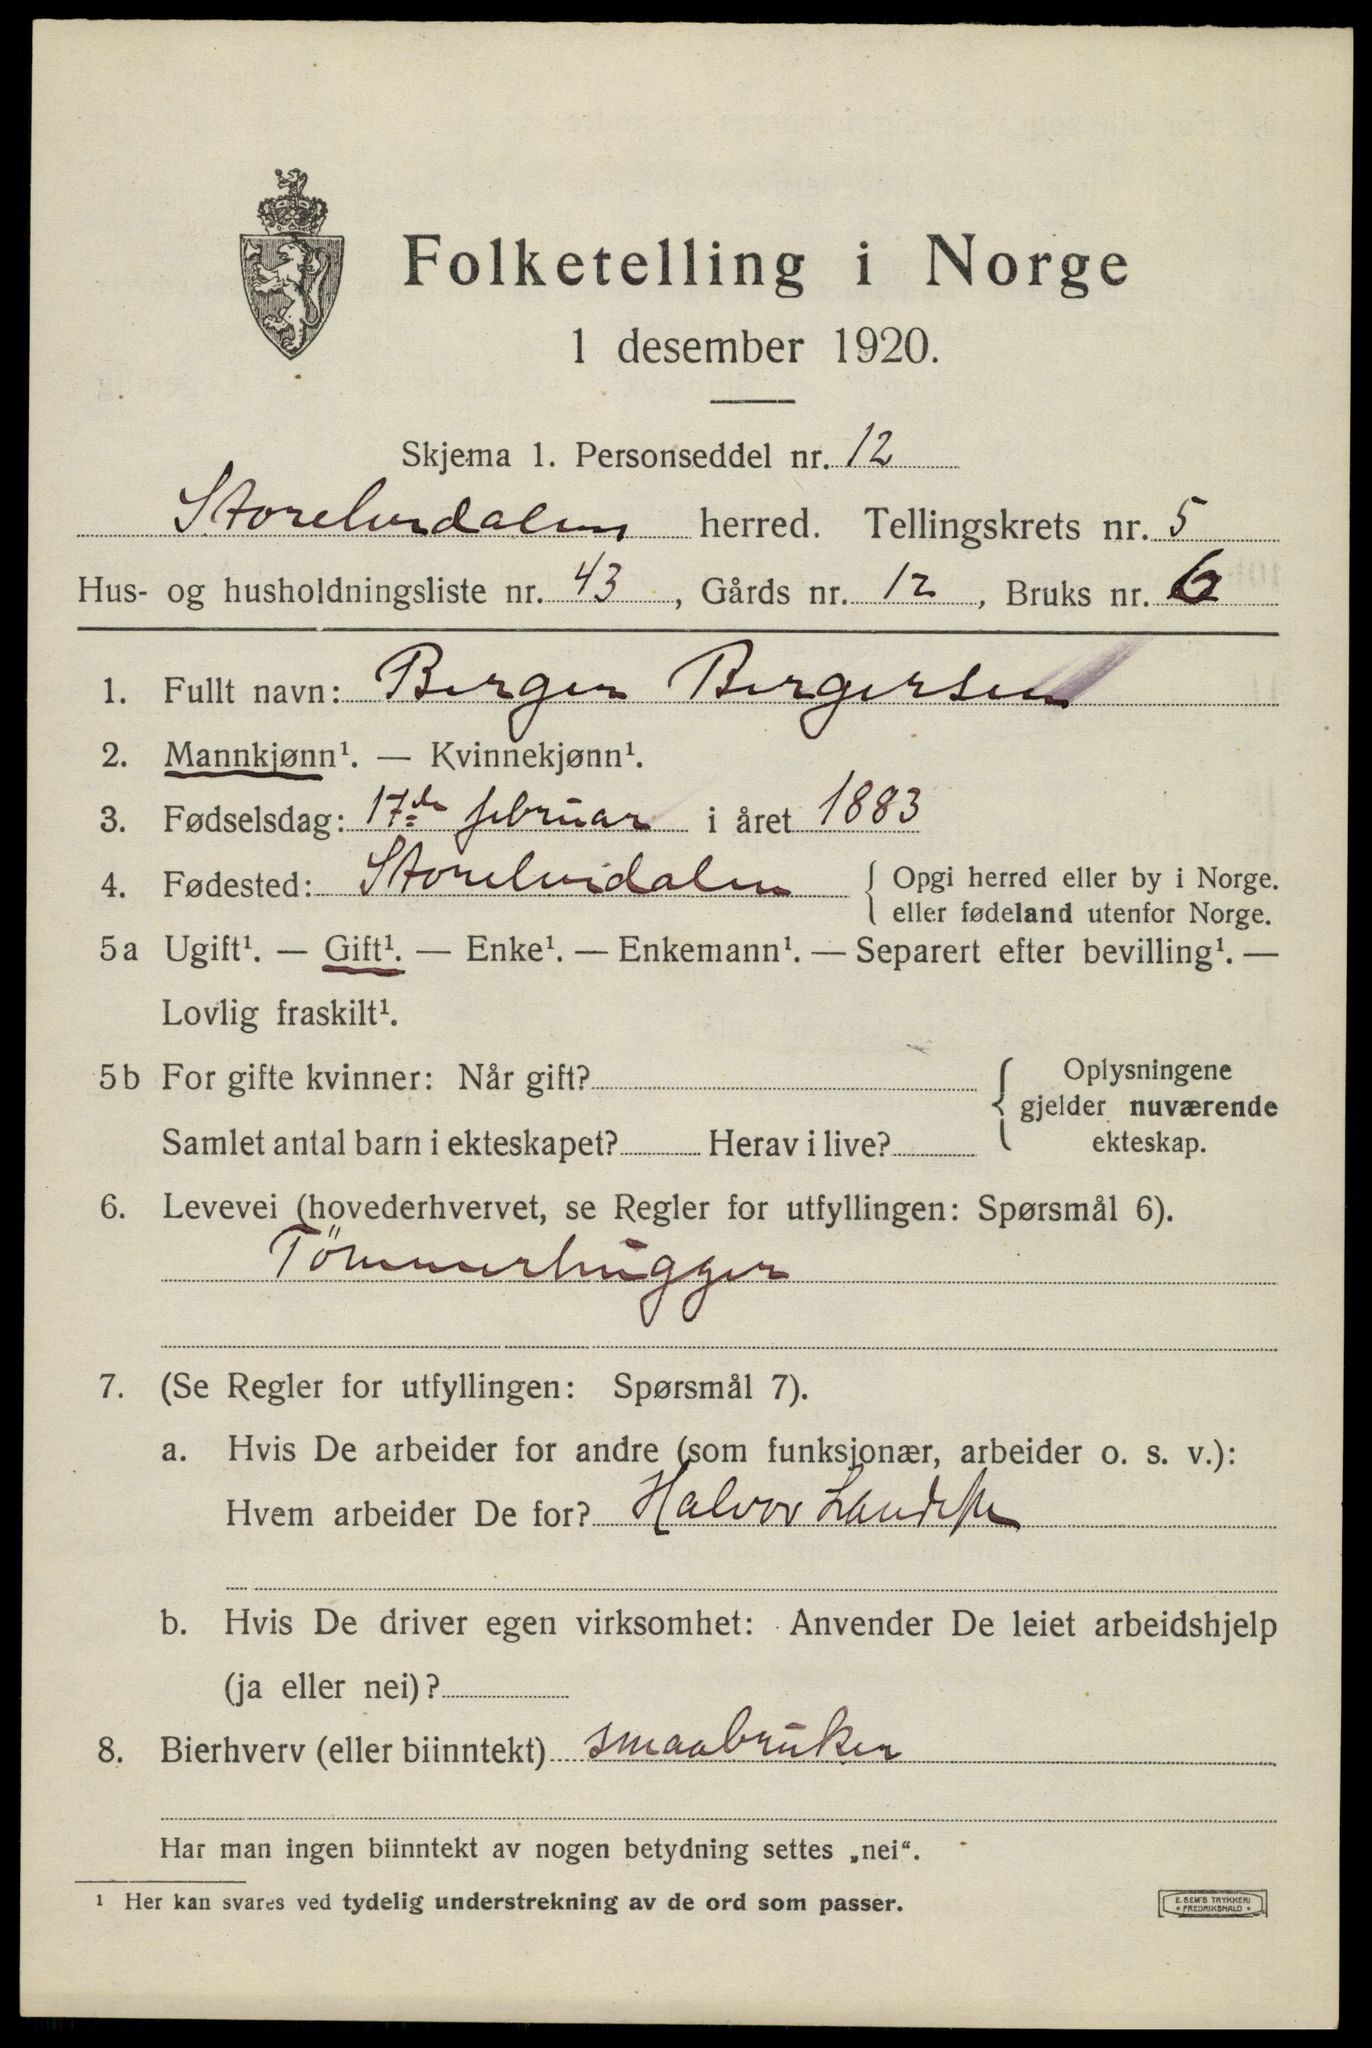 Folketelling i Norge
1 desember 1920.
Skjema 1. Personseddel nr. 12
Storelvedalen herred. Tellingskrets nr. 5
Hus- og husholdningsliste nr. 43, Gårds nr. 12, Bruks nr. 6
1. Fullt navn: Berger Bergersen
2. Mannkjønn¹. — Kvinnekjønn¹.
3. Fødselsdag: 17de februar i året 1883
4. Fødested: Storelvedalen { Opgi herred eller by i Norge.
eller fødeland utenfor Norge.
5a Ugift¹. — Gift¹. — Enke¹. — Enkemann¹. — Separert efter bevilling¹. —
Lovlig fraskilt¹.
5b For gifte kvinner: Når gift? { Oplysningene
gjelder nuværende
Samlet antal barn i ekteskapet? Herav i live? ekteskap.
6. Levevei (hovederhvervet, se Regler for utfyllingen: Spørsmål 6).
Tömmerhugger
7. (Se Regler for utfyllingen: Spørsmål 7).
a. Hvis De arbeider for andre (som funksjonær, arbeider o. s. v.):
Hvem arbeider De for? Halvor
b. Hvis De driver egen virksomhet: Anvender De leiet arbeidshjelp
(ja eller nei)?
8. Bierhverv (eller biinntekt) smaabruker
Har man ingen biinntekt av nogen betydning settes „nei“.
¹ Her kan svares ved tydelig understrekning av de ord som passer.
E. SEM'S TRYKKERI
FREDRIKSHALD